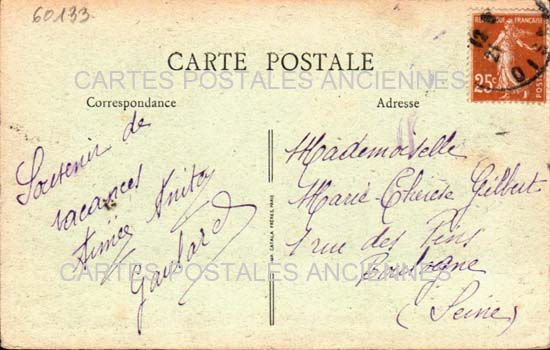 60133
CARTE POSTALE
RÉPUBLIQUE FRANÇAISE
25c
CARTES POSTALES ANCIENNES
Correspondance
Adresse
Souvenir de
vacances
Aimée Anita
Gaubard
IMP. CATALA FRÈRES, PARIS
Mademoiselle
Marie-Thérèse Gilbert
1 rue des Pins
Boulogne
(Seine)
CARTES POSTALES ANCIENNES